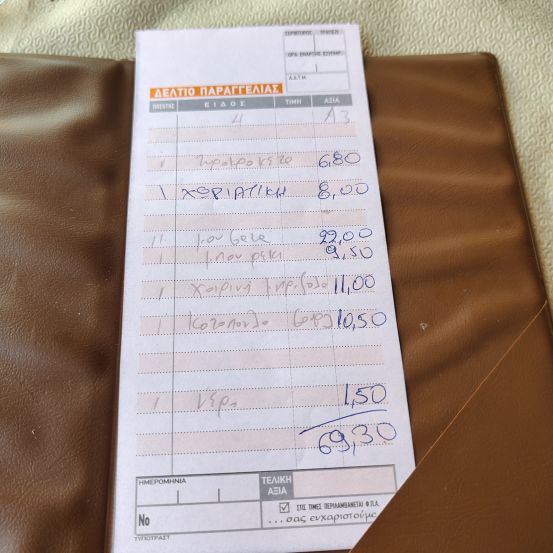 ΣΕΡΒΙΤΟΡΟΣ ΤΡΑΠΕΖΙ
ΩΡΑ ΕΝΑΡΞΗΣ ΕΞΥΠΗΡ.
Α.Δ.Τ.Μ.
ΔΕΛΤΙΟ ΠΑΡΑΓΓΕΛΙΑΣ
ΠΟΣΟΤΗΣ ΕΙΔΟΣ ΤΙΜΗ ΑΞΙΑ
4 Α3
1 Τυροκροκετα 6,80
1 ΧΩΡΙΑΤΙΚΗ 8,00
22,00
1 μπουρεκι 9,50
1 Χοιρινή μπριζολα 11,00
1 Κοτοπουλο 10,50
1 Νερο 1,50
69,30
ΗΜΕΡΟΜΗΝΙΑ
ΤΕΛΙΚΗ ΑΞΙΑ
No
ΣΤΙΣ ΤΙΜΕΣ ΠΕΡΙΛΑΜΒΑΝΕΤΑΙ Φ.Π.Α.
...σας ευχαριστούμε
ΤΥΠΟΤΡΑΣΤ